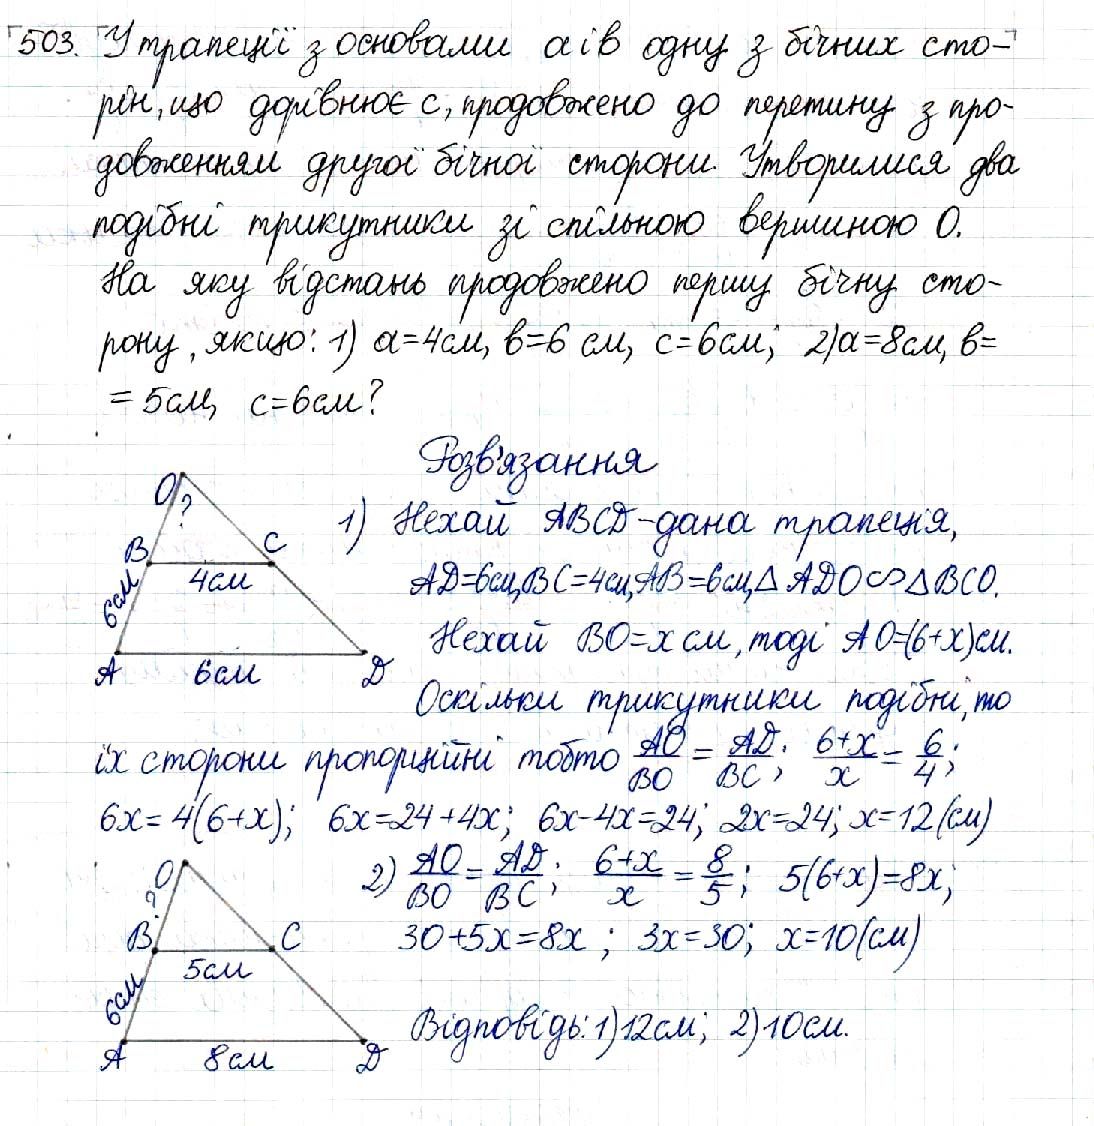 503. У трапеції з основами а і в одну з бічних сто-
рін, що дорівнює с, продовжено до перетину з про-
довженням другої бічної сторони. Утворилися два
подібні трикутники зі спільною вершиною О.
На яку відстань продовжено першу бічну сто-
рону, якщо: 1) а=4см, в=6 см, с=6см; 2) а=8см, в=
= 5см, с=6см?
Розв'язання
О
?
В
С
4см
6см
А
6см
D
1) Нехай ABCD - дана трапеція,
AD=6см, BC=4см, AB=6см, △ ADO ∽ △ BCO.
Нехай BO=x см, тоді AO=(6+x)см.
Оскільки трикутники подібні, то
їх сторони пропорційні тобто AO/BO = AD/BC; (6+x)/x = 6/4;
6x=4(6+x); 6x=24+4x; 6x-4x=24; 2x=24; x=12(см)
О
?
В
С
5см
6см
А
8см
D
2) AO/BO = AD/BC; (6+x)/x = 8/5; 5(6+x)=8x;
30+5x=8x; 3x=30; x=10(см)
Відповідь: 1) 12см; 2) 10см.